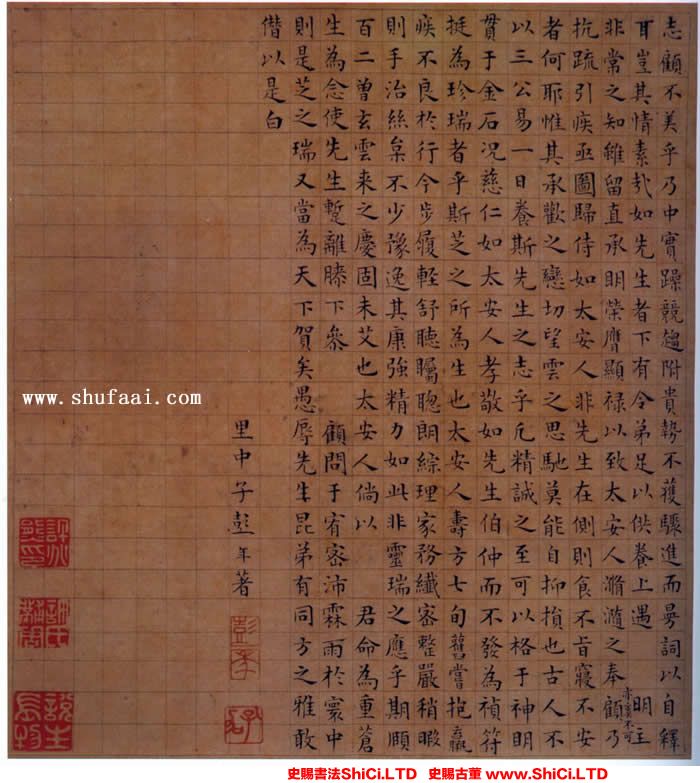 志顧不美乎乃中實躁競趨附貴勢不獲驟進而易詞以自釋
耳豈其情素哉如先生者下有令弟足以供養上遇 明主
非常之知雖留直承明榮膺顯祿以致太安人滫瀡之奉顧乃
亦義不可
抗疏引疾亟圖歸侍如太安人非先生在側則食不旨寢不安
者何耶惟其承歡之戀切望雲之思馳莫能自抑損也古人不
以三公易一日養斯先生之志乎凡精誠之至可以格于神明
貫于金石況慈仁如太安人孝敬如先生伯仲而不發為禎符
挺為珍瑞者乎斯芝之所為生也太安人壽方七旬舊嘗抱羸
疾不良於行今步履輕舒聽矚聰朗綜理家務纖密整嚴稍暇
則手治絲枲不少豫逸其康強精力如此非靈瑞之應乎期頤
百二曾玄雲來之慶固未艾也太安人倘以 君命為重蒼
生為念使先生暫離膝下參 顧問于宥密沛霖雨於寰中
則是芝之瑞又當為天下賀矣愚辱先生昆弟有同方之雅敢
僭以是白
里中子彭年著
彭年
www.shufaai.com
史賜書法ShiCi.LTD 史賜古董 www.ShiCi.LTD